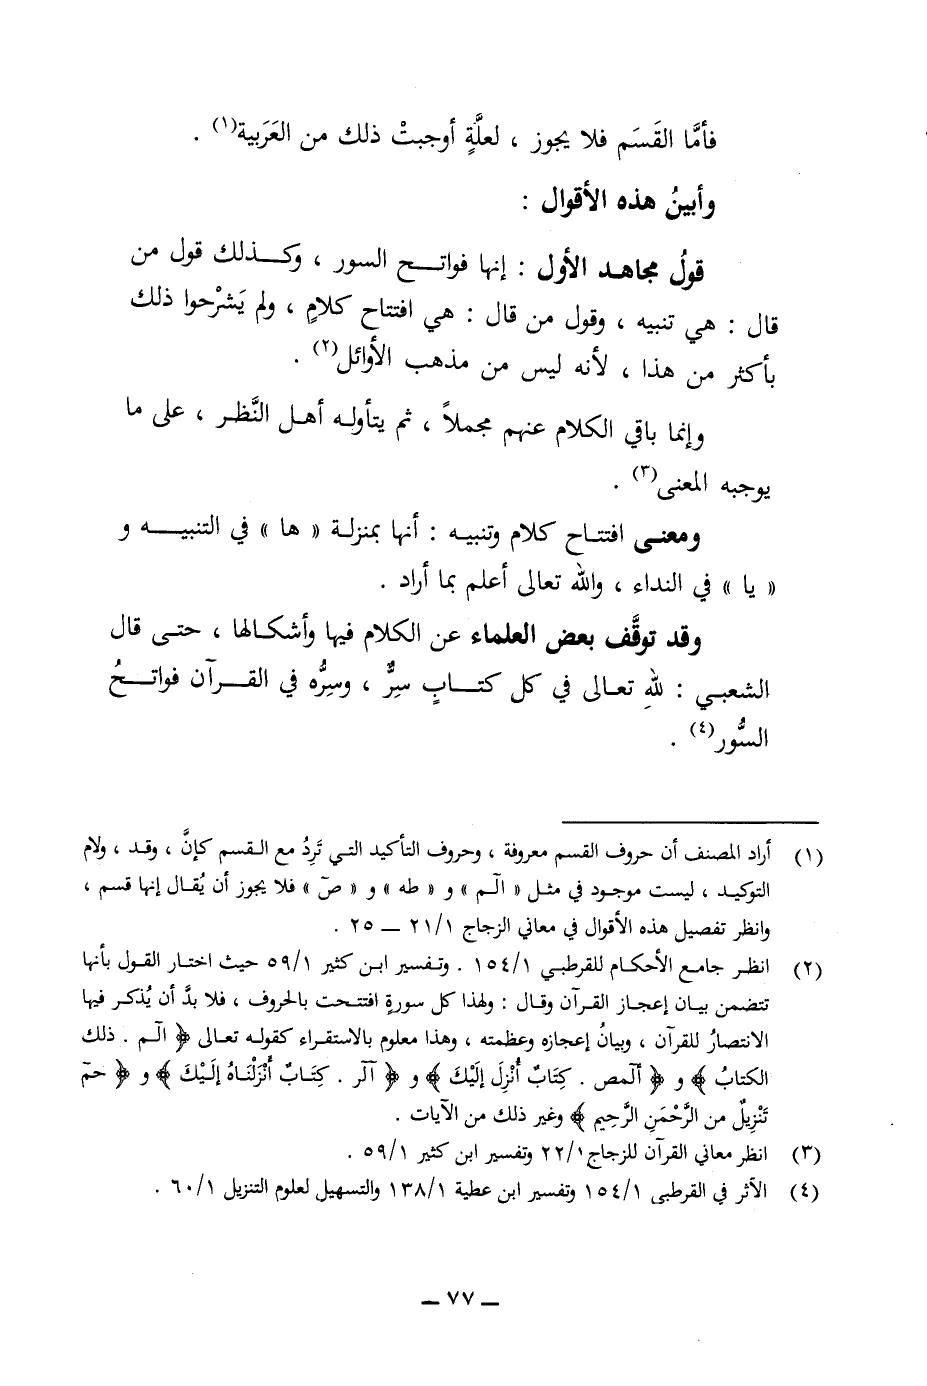 فأمَّا القَسَم فلا يجوز ، لعلَّةٍ أوجبتْ ذلك من العَرَبية(١) .
وأبينُ هذه الأقوال :
قولُ مجاهد الأول : إنها فواتح السور ، وكذلك قول من
قال : هي تنبيه ، وقول من قال : هي افتتاح كلامٍ ، ولم يَشرْحوا ذلك
بأكثر من هذا ، لأنه ليس من مذهب الأوائل(٢) .
وإنما باقي الكلام عنهم مجملاً ، ثم يتأوله أهل النَّظر ، على ما
يوجبه المعنى(٣) .
ومعنى افتتاح كلام وتنبيه : أنها بمنزلة « ها » في التنبيه و
« يا » في النداء ، والله تعالى أعلم بما أراد .
وقد توقَّف بعض العلماء عن الكلام فيها وأشكالها ، حتى قال
الشعبي : للهِ تعالى في كل كتابٍ سِرٌّ ، وسِرُّه في القرآن فواتحُ
السُّور(٤) .
(١) أراد المصنف أن حروف القسم معروفة ، وحروف التأكيد التي تَرِدُ مع القسم كإنَّ ، وقد ، ولام
التوكيد ، ليست موجود في مثل « الٓم » و « طه » و « صٓ » فلا يجوز أن يُقال إنها قسم ،
وانظر تفصيل هذه الأقوال في معاني الزجاج ٢١/١ ــ ٢٥ .
(٢) انظر جامع الأحكام للقرطبي ١٥٤/١ . وتفسير ابن كثير ٥٩/١ حيث اختار القول بأنها
تتضمن بيان إعجاز القرآن وقال : ولهذا كل سورةٍ افتتحت بالحروف ، فلا بدَّ أن يُذكر فيها
الانتصارُ للقرآن ، وبيانُ إعجازه وعظمته ، وهذا معلوم بالاستقراء كقوله تعالى ﴿ الٓم . ذلك
الكتابُ ﴾ و ﴿ الٓمص . كِتَابٌ أُنْزِلَ إلَيْكَ ﴾ و ﴿ الٓر . كِتَابٌ أَنْزَلْنَاهُ إلَيْكَ ﴾ و ﴿ حمٓ
تَنْزِيلٌ من الرَّحْمَنِ الرَّحِيمِ ﴾ وغير ذلك من الآيات .
(٣) انظر معاني القرآن للزجاج ٢٢/١ وتفسير ابن كثير ٥٩/١ .
(٤) الأثر في القرطبى ١٥٤/١ وتفسير ابن عطية ١٣٨/١ والتسهيل لعلوم التنزيل ٦٠/١ .
ــ ٧٧ ــ